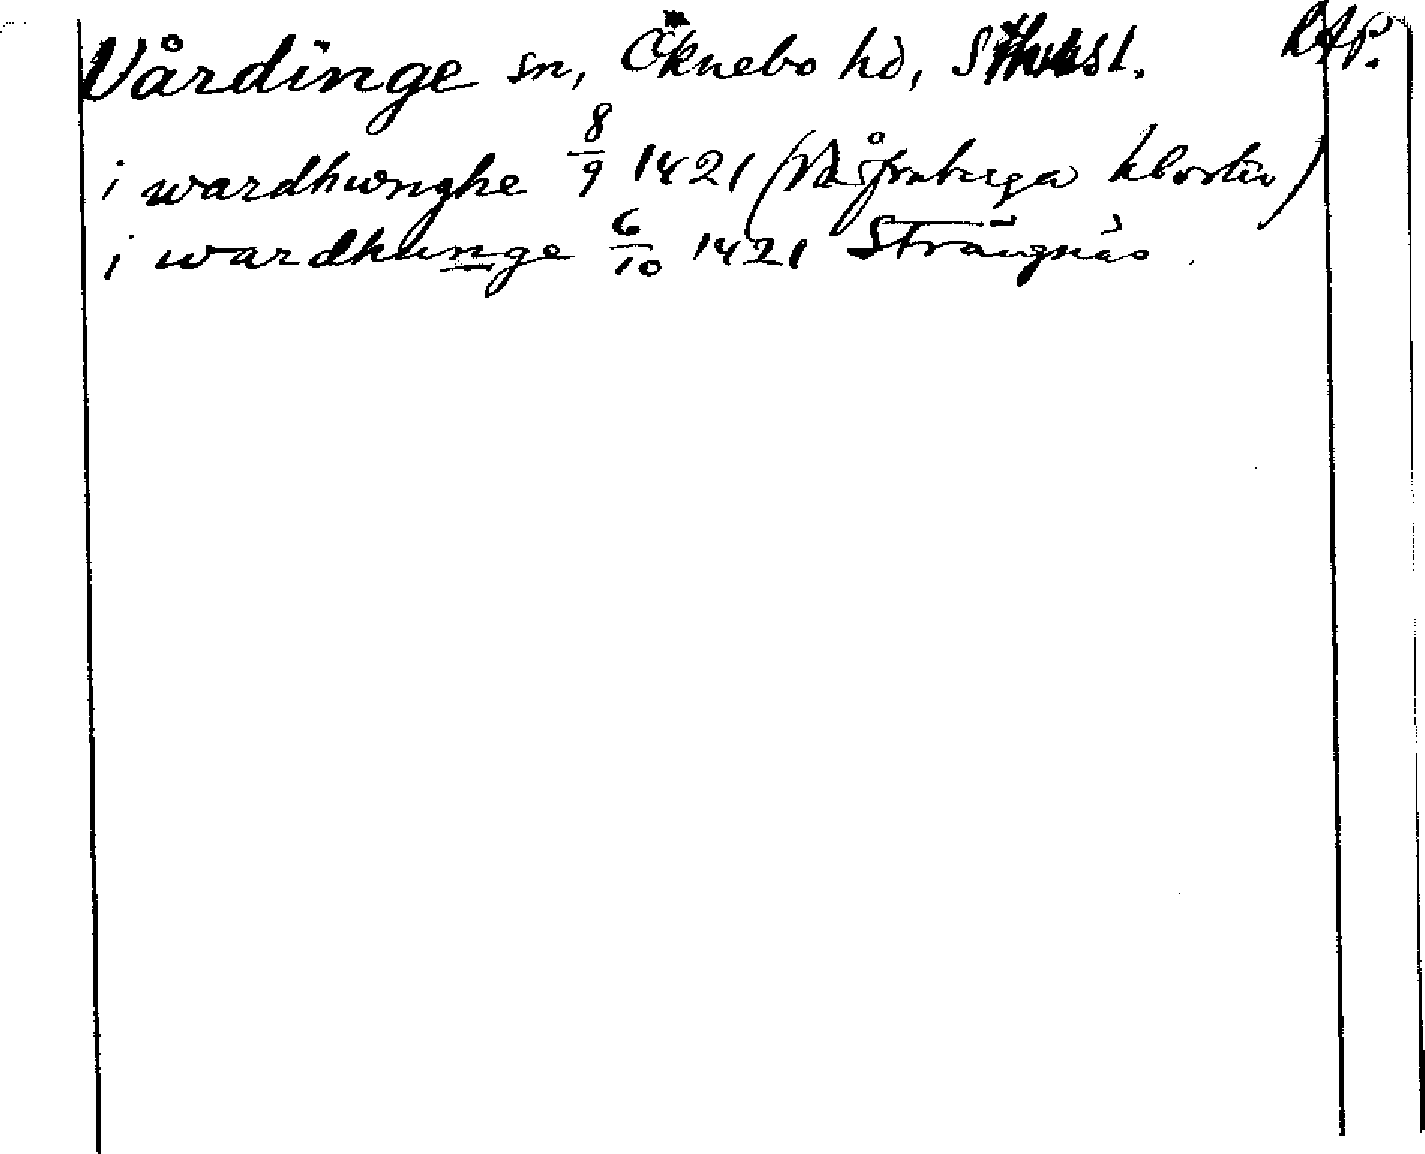 Vårdinge sn, Öknebo hd, Sthmsl. RAP.
i wardhunghe 8/9 1421 (Vårfruberga kloster)
i wardhunge 6/10 1421 Strängnäs.